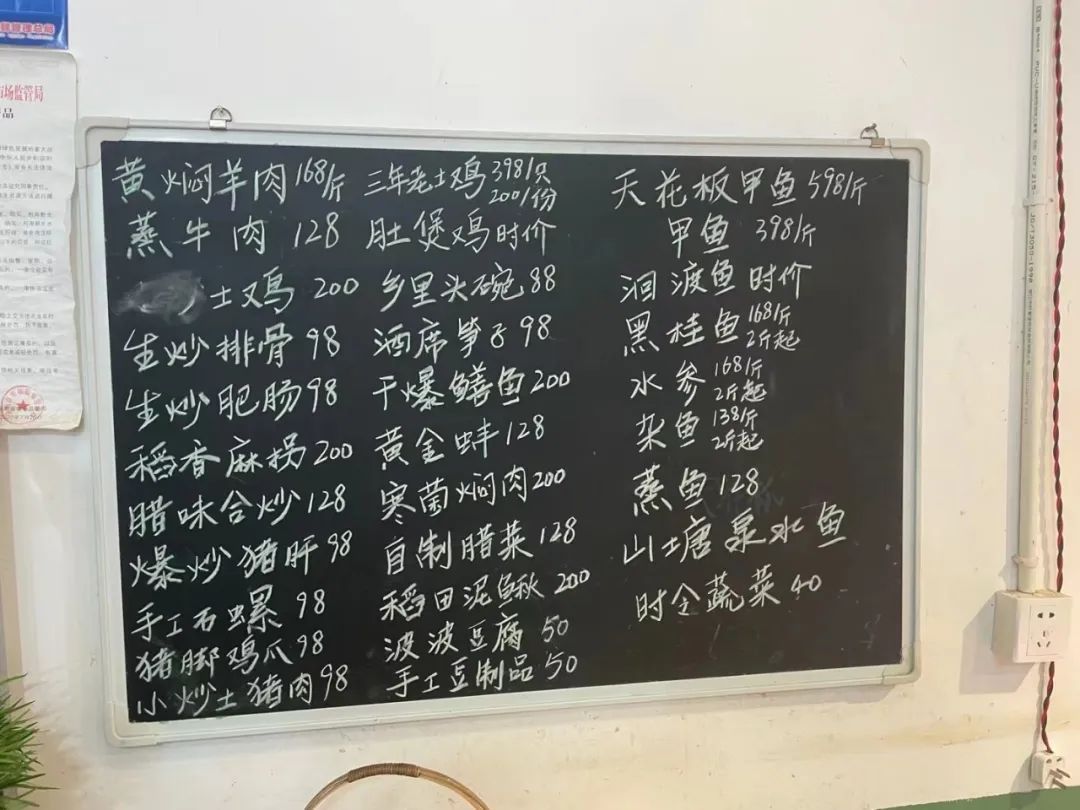 管理总局
市场监管局
品
黄焖羊肉168/斤
蒸牛肉 128
土叉鸡 200
生炒排骨 98
生炒肥肠98
稻香麻拐200
腊味合炒128
爆炒猪肝98
手工石螺 98
猪脚鸡爪98
小炒土猪肉98
三年老土鸡398/只
200/份
肚煲鸡时价
乡里头碗88
酒席笋子98
干爆鳝鱼200
黄金蚌128
寒菌焖肉200
自制腊菜128
稻田泥鳅200
波波豆腐 50
手工豆制品 50
天花板甲鱼598/斤
甲鱼 398/斤
洄渡鱼 时价
黑桂鱼168/斤
2斤起
水参168/斤
2斤起
杂鱼138/斤
2斤起
蒸鱼128
山塘泉水鱼
时令蔬菜40